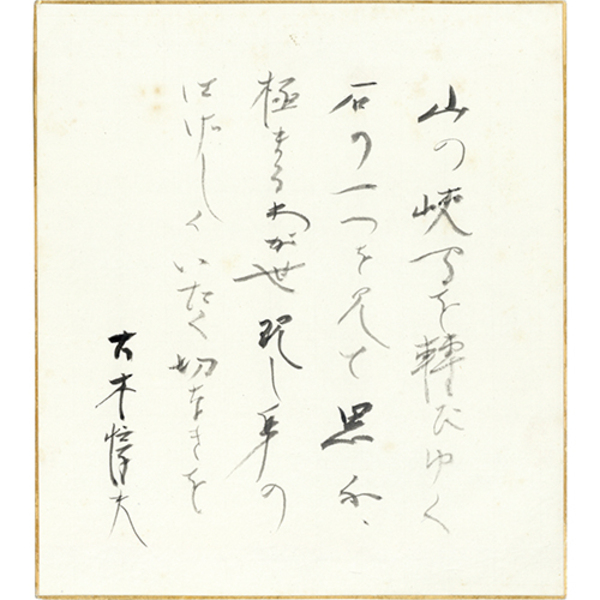 山の峡間を轉びゆく
石の一つを見て思ふ、
極まるわが世現し身の
はげしくいたく切なきを
大木惇夫